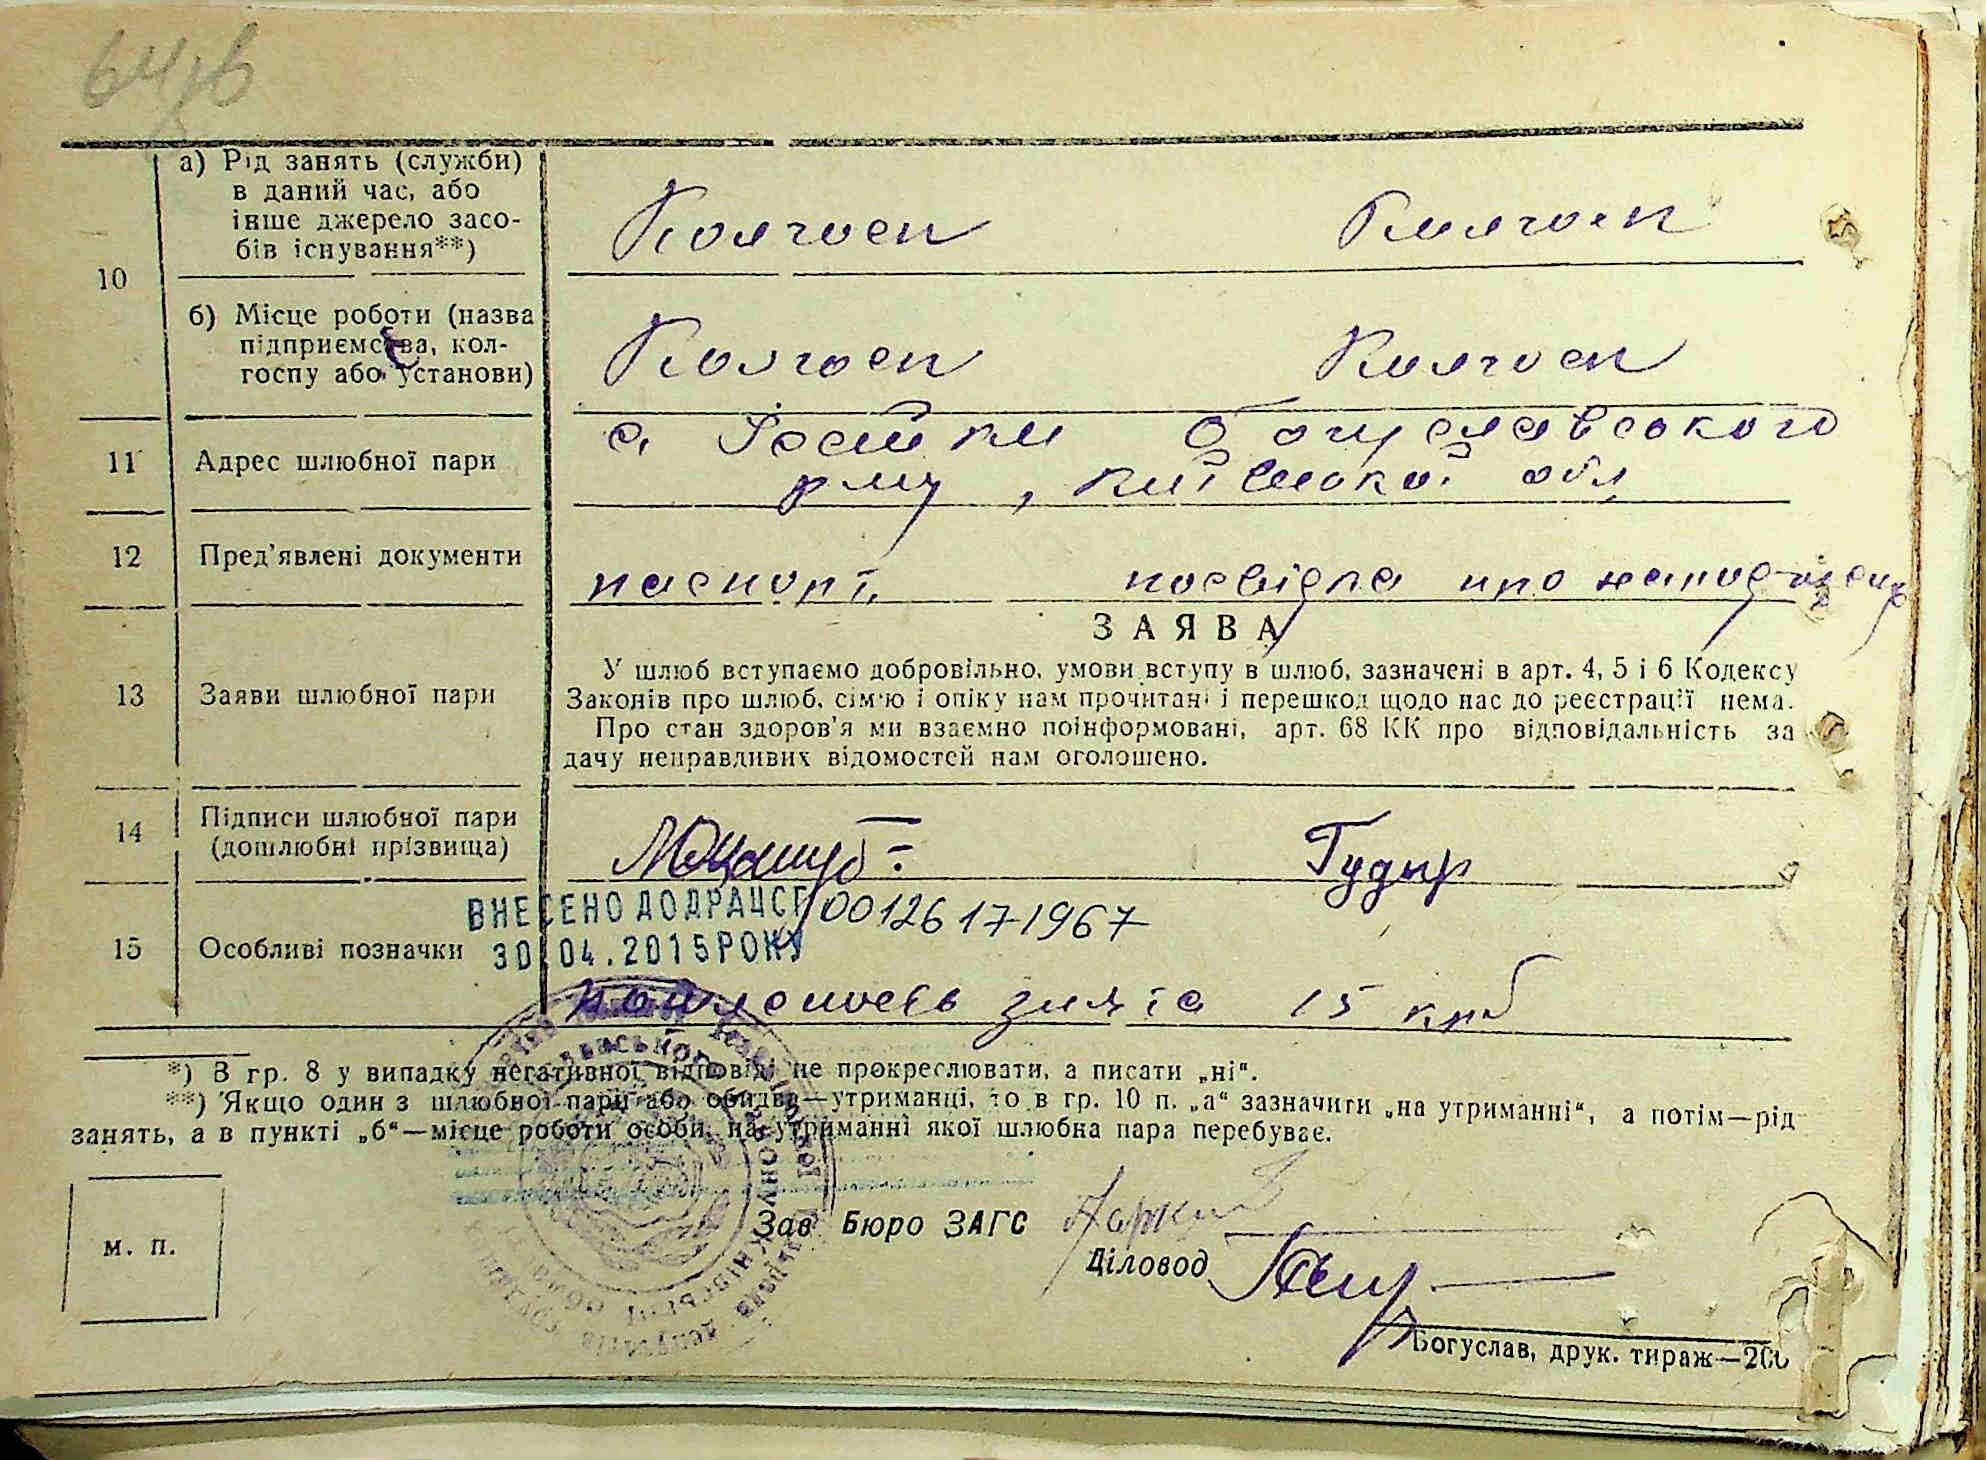 а) Рід занять (служби)
в даний час, або
інше джерело засо-
бів існування**)
Колгосп Колгосп
10
б) Місце роботи (назва
підприємства, кол-
госпу або установи)
Колгосп Колгосп
11 Адрес шлюбної пари
с. Богуславського
р-ну, Київської обл
12 Пред'явлені документи
паспорт, посвідка про
ЗАЯВА
13 Заяви шлюбної пари
У шлюб вступаємо добровільно, умови вступу в шлюб, зазначені в арт. 4, 5 і 6 Кодексу
Законів про шлюб, сім'ю і опіку нам прочитані і перешкод щодо нас до реєстрації нема.
Про стан здоров'я ми взаємно поінформовані, арт. 68 КК про відповідальність за
дачу неправдивих відомостей нам оголошено.
14 Підписи шлюбної пари
(дошлюбні прізвища)
Гудыр
ВНЕСЕНО ДО ДРАЦСГ 00126171967
15 Особливі позначки
30.04.2015 РОКУ
15 крб
*) В гр. 8 у випадку негативної відповіді не прокреслювати, а писати „ні“.
**) Якщо один з шлюбної пари або обидва—утриманці, то в гр. 10 п. „а“ зазначити „на утриманні“, а потім—рід
занять, а в пункті „б“—місце роботи особи, на утриманні якої шлюбна пара перебуває.
м. п.
Зав Бюро ЗАГС
Діловод
Богуслав, друк. тираж—200